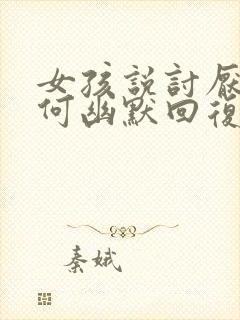 女孩説討厭
何幽默回復
秦娥